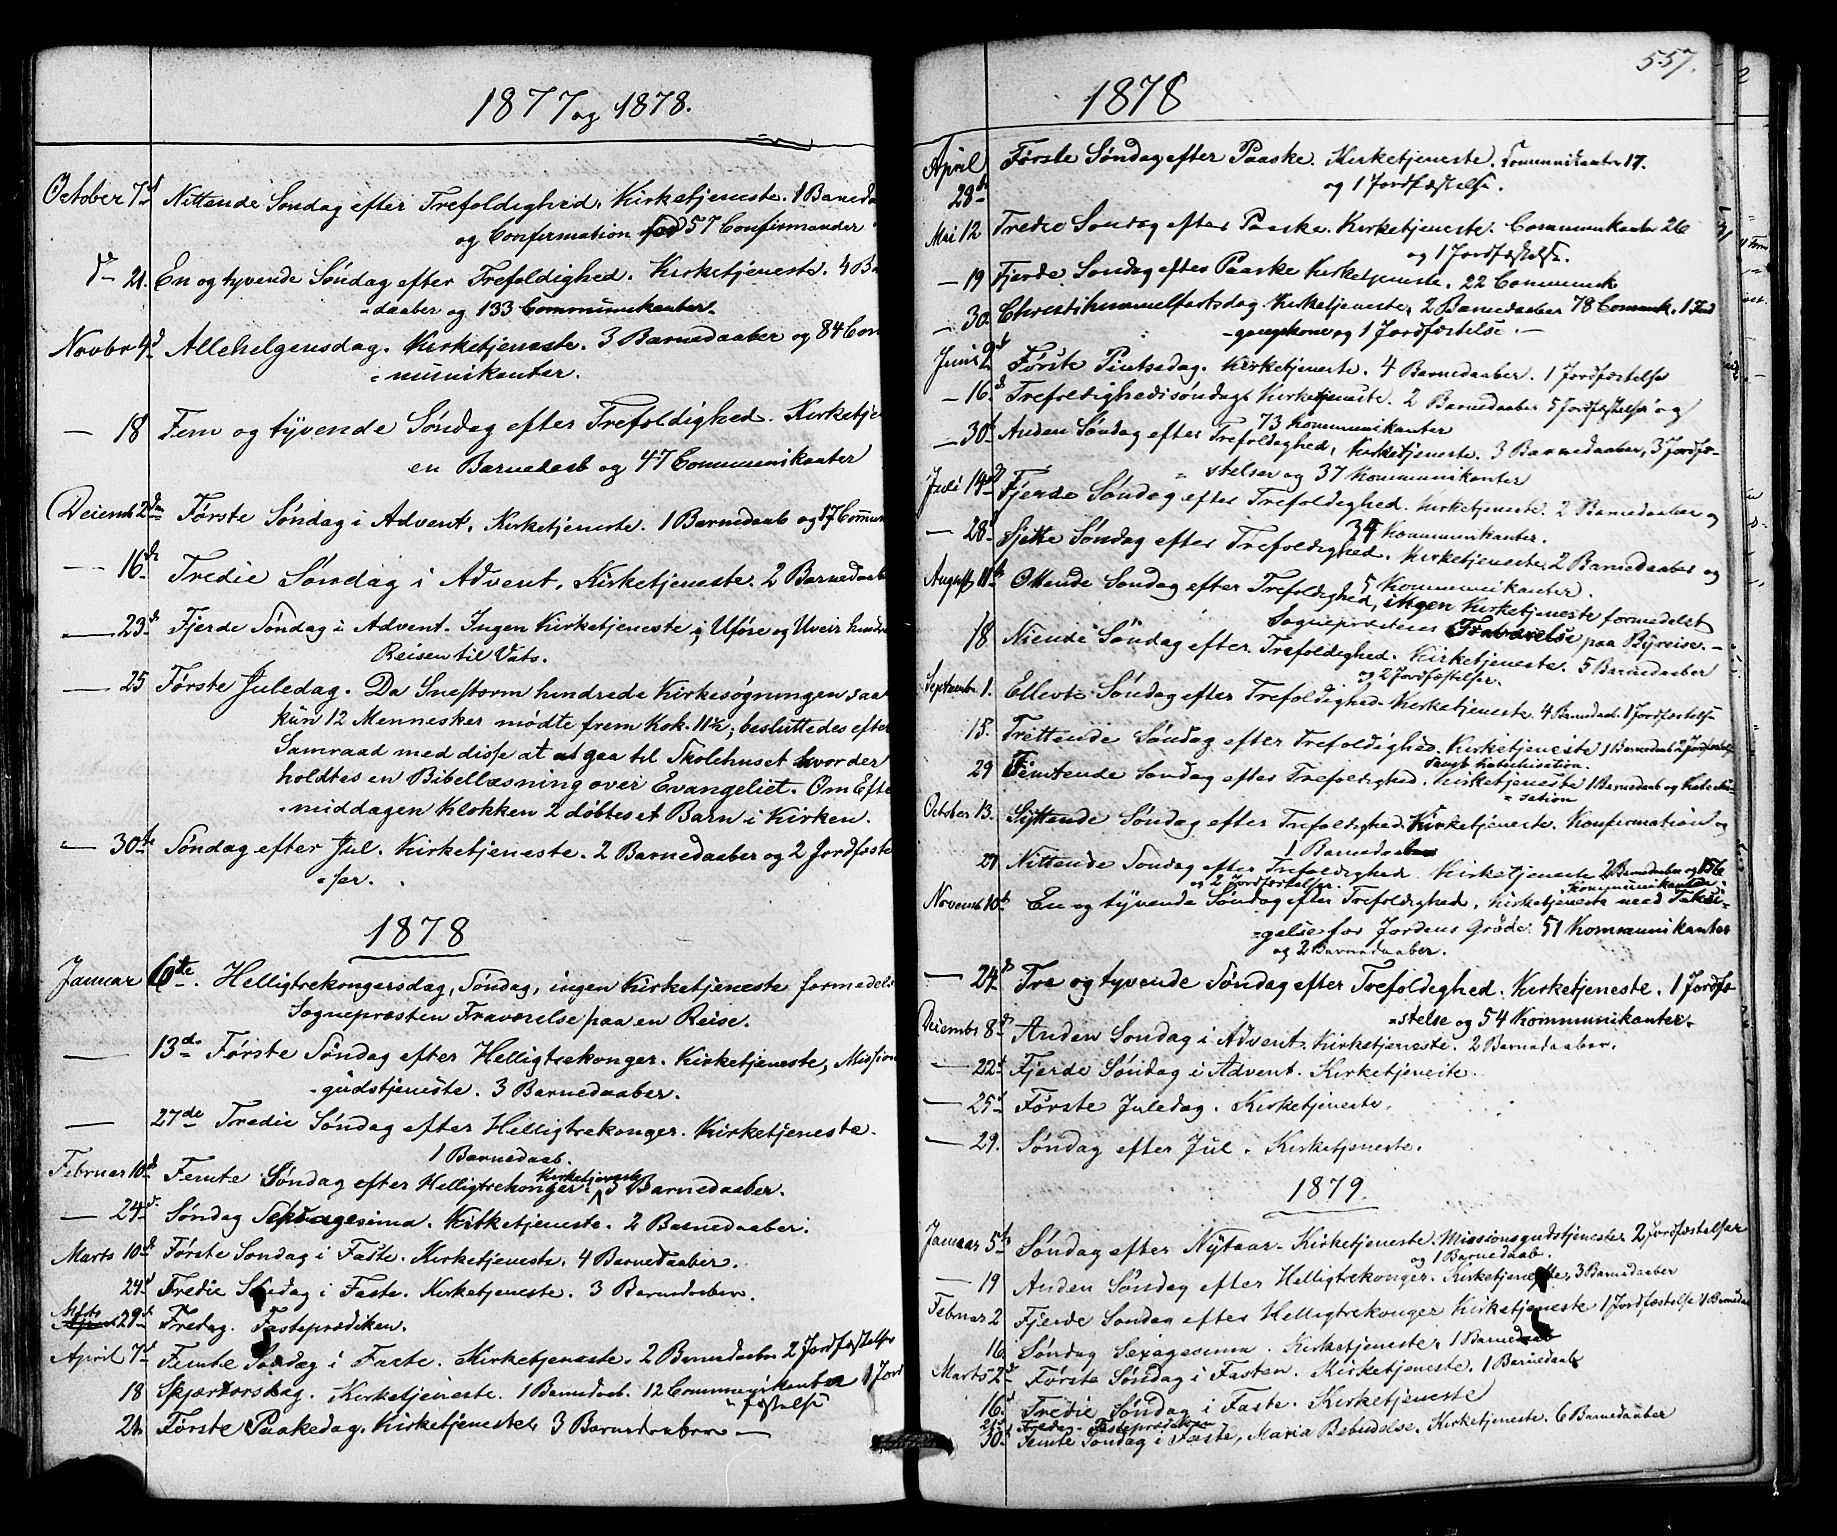 1877 og 1878.
October 7d Nittende Søndag efter Trefoldighed. Kirketjeneste. 1 Barneda
og Confirmation 57 Confirmander
21 En og tyvende Søndag efter Trefoldighed. Kirketjeneste. 4 B
=daaber og 133 Communikanter.
Novbr 4d Allehelgensdag. Kirketjeneste. 3 Barnedaaber og 84 Com
=munikanter.
— 18 Fem og tyvende Søndag efter Trefoldighed. Kirketje
en Barnedaab og 47 Communikanter
Decemb 2den Første Søndag i Advent. Kirketjeneste. 1 Barnedaab og 17 Commun
— 16de Tredie Søndag i Advent. Kirketjeneste. 2 Barnedaabe
— 23d Fjerde Søndag i Advent. Ingen Kirketjeneste, Uføre og Uveir hindre
Reisen til Vats.
— 25 Første Juledag. Da Snestorm hindrede Kirkesøgningen saa
kun 12 Mennesker mødte frem Kok. 11½; besluttedes efter
Samraad med disse at gaa til Skolehuset hvor der
holdtes en Bibellæsning over Evangeliet. Om Efte
=middagen Klokken 2 døbtes et Barn i Kirken.
— 30te Søndag efter Jul. Kirketjeneste. 2 Barnedaaber og 2 Jordfæste
=ser.
1878
Januar 6te. Helligtrekongersdag, Søndag, ingen Kirketjeneste formedels
Sognepræsten Fraværelse paa en Reise.
— 13de Første Søndag efter Helligtrekonger. Kirketjeneste, Mission
=gudstjeneste. 3 Barnedaaber.
— 27de Tredie Søndag efter Helligtrekonger. Kirketjeneste.
1 Barnedaab.
Februar 10d Femte Søndag efter Helligtrekonger. Kirketjeneste 3 Barnedaaber.
— 24d. Søndag Septuagesima. Kirketjeneste. 2 Barnedaaber.
Marts 10d Første Søndag i Faste. Kirketjeneste. 4 Barnedaaber.
24d Tredie Søndag i Faste. Kirketjeneste. 3 Barnedaaber.
Marts 29d Fredag. Fasteprædiken.
April 7d Femte Søndag i Faste. Kirketjeneste. 2 Barnedaaber 2 Jordfæstelser
18 Skjærtorsdag. Kirketjeneste. 1 Barnedaab. 12 Communikanter 1 Jord
=fæstelse
21. Første Paaskedag. Kirketjeneste. 3 Barnedaaber —
557.
1878
April 28d Første Søndag efter Paaske. Kirketjeneste. Communikanter 17.
og 1 Jordfæstelse.
Mai 12 Tredie Søndag efter Paaske. Kirketjeneste. Communikanter 26
og 1 Jordfæstelse.
— 19 Fjerde Søndag efter Paaske Kirketjeneste. 22 Communik
— 30. Christihimmelfartsdag. Kirketjeneste, 2 Barnedaaber 78 Comunk. 1 Ind
=gangskone og 1 Jordfæstelse. —
Juni 9d Første Pintsedag. Kirketjeneste. 4 Barnedaaber. 1 Jordfæstelse
— 16d Trefoldighedssøndag. Kirketjeneste. 2 Barnedaaber 5 Jordfæstelser og
73 Kommunikanter
— 30d Anden Søndag efter Trefoldighed, Kirketjeneste. 3 Barnedaaber, 3 Jordfæ=
=stelser og 37 Kommunikanter
Juli 14d Fjerde Søndag efter Trefoldighed. Kirketjeneste. 2 Barnedaaber og
34 Kommunikanter.
— 28d Sjette Søndag efter Trefoldighed. Kirketjeneste 2 Barnedaaber og
5 Kommunikanter.
August 11te Ottende Søndag efter Trefoldighed, ingen Kirketjeneste formedelst
Sognepræstens Fraværelse paa Byreise. —
18 Niende Søndag efter Trefoldighed. Kirketjeneste. 5 Barnedaaber
og 2 Jordfæstelser.
Septembr 1. Ellevte Søndag efter Trefoldighed. Kirketjeneste. 4 Barnedaab. 1 Jordfæstelse
15. Trettende Søndag efter Trefoldighed. Kirketjeneste 1 Barnedaab 2 Jordfæstelse
samt Katechisation.
29 Femtende Søndag efter Trefoldighed. Kirketjeneste 1 Barnedaab og Katechi=
=sation
October 13. Syttende Søndag efter Trefoldighed. Kirketjeneste. Konfirmation og
1 Barnedaab
27 Nittende Søndag efter Trefoldighed. Kirketjeneste 2 Barnedaaber og 156
og 2 Jordfæstelser. Kommunikanter
Novemb 10d En og tyvende Søndag efter Trefoldighed. Kirketjeneste med Taksi=
=gelse for Jordens Grøde. 51 Kommunikanter
og 2 Barnedaaber.
— 24d Tre og tyvende Søndag efter Trefoldighed. Kirketjeneste. 1 Jordfæ=
=stelse og 54 Kommunikanter.
Decembr 8d Anden Søndag i Advent. Kirketjeneste. 2 Barnedaaber.
— 22d Fjerde Søndag i Advent. Kirketjeneste.
— 25d Første Juledag. Kirketjeneste.
— 29. Søndag efter Jul. Kirketjeneste.
1879.
Januar 5te Søndag efter Nytaar. Kirketjeneste. Missionsgudstjeneste 2 Jordfæstelser
og 1 Barnedaab.
— 19 Anden Søndag efter Helligtrekonger. Kirketjeneste. 3 Barnedaaber
Februar 2 Fjerde Søndag efter Helligtrekonger Kirketjeneste 1 Jordfæstelse 1 Barnedaa
16 Søndag Sexagesima. Kirketjeneste. 1 Barnedaab
Marts 2d Første Søndag i Fasten. Kirketjeneste. 1 Barnedaab
16d Tredie Søndag i Faste. Kirketjeneste
21d Fredag — Fasteprædiken
30d Femte Søndag i Faste, Maria Bebudelse. Kirketjeneste. 6 Barnedaaber